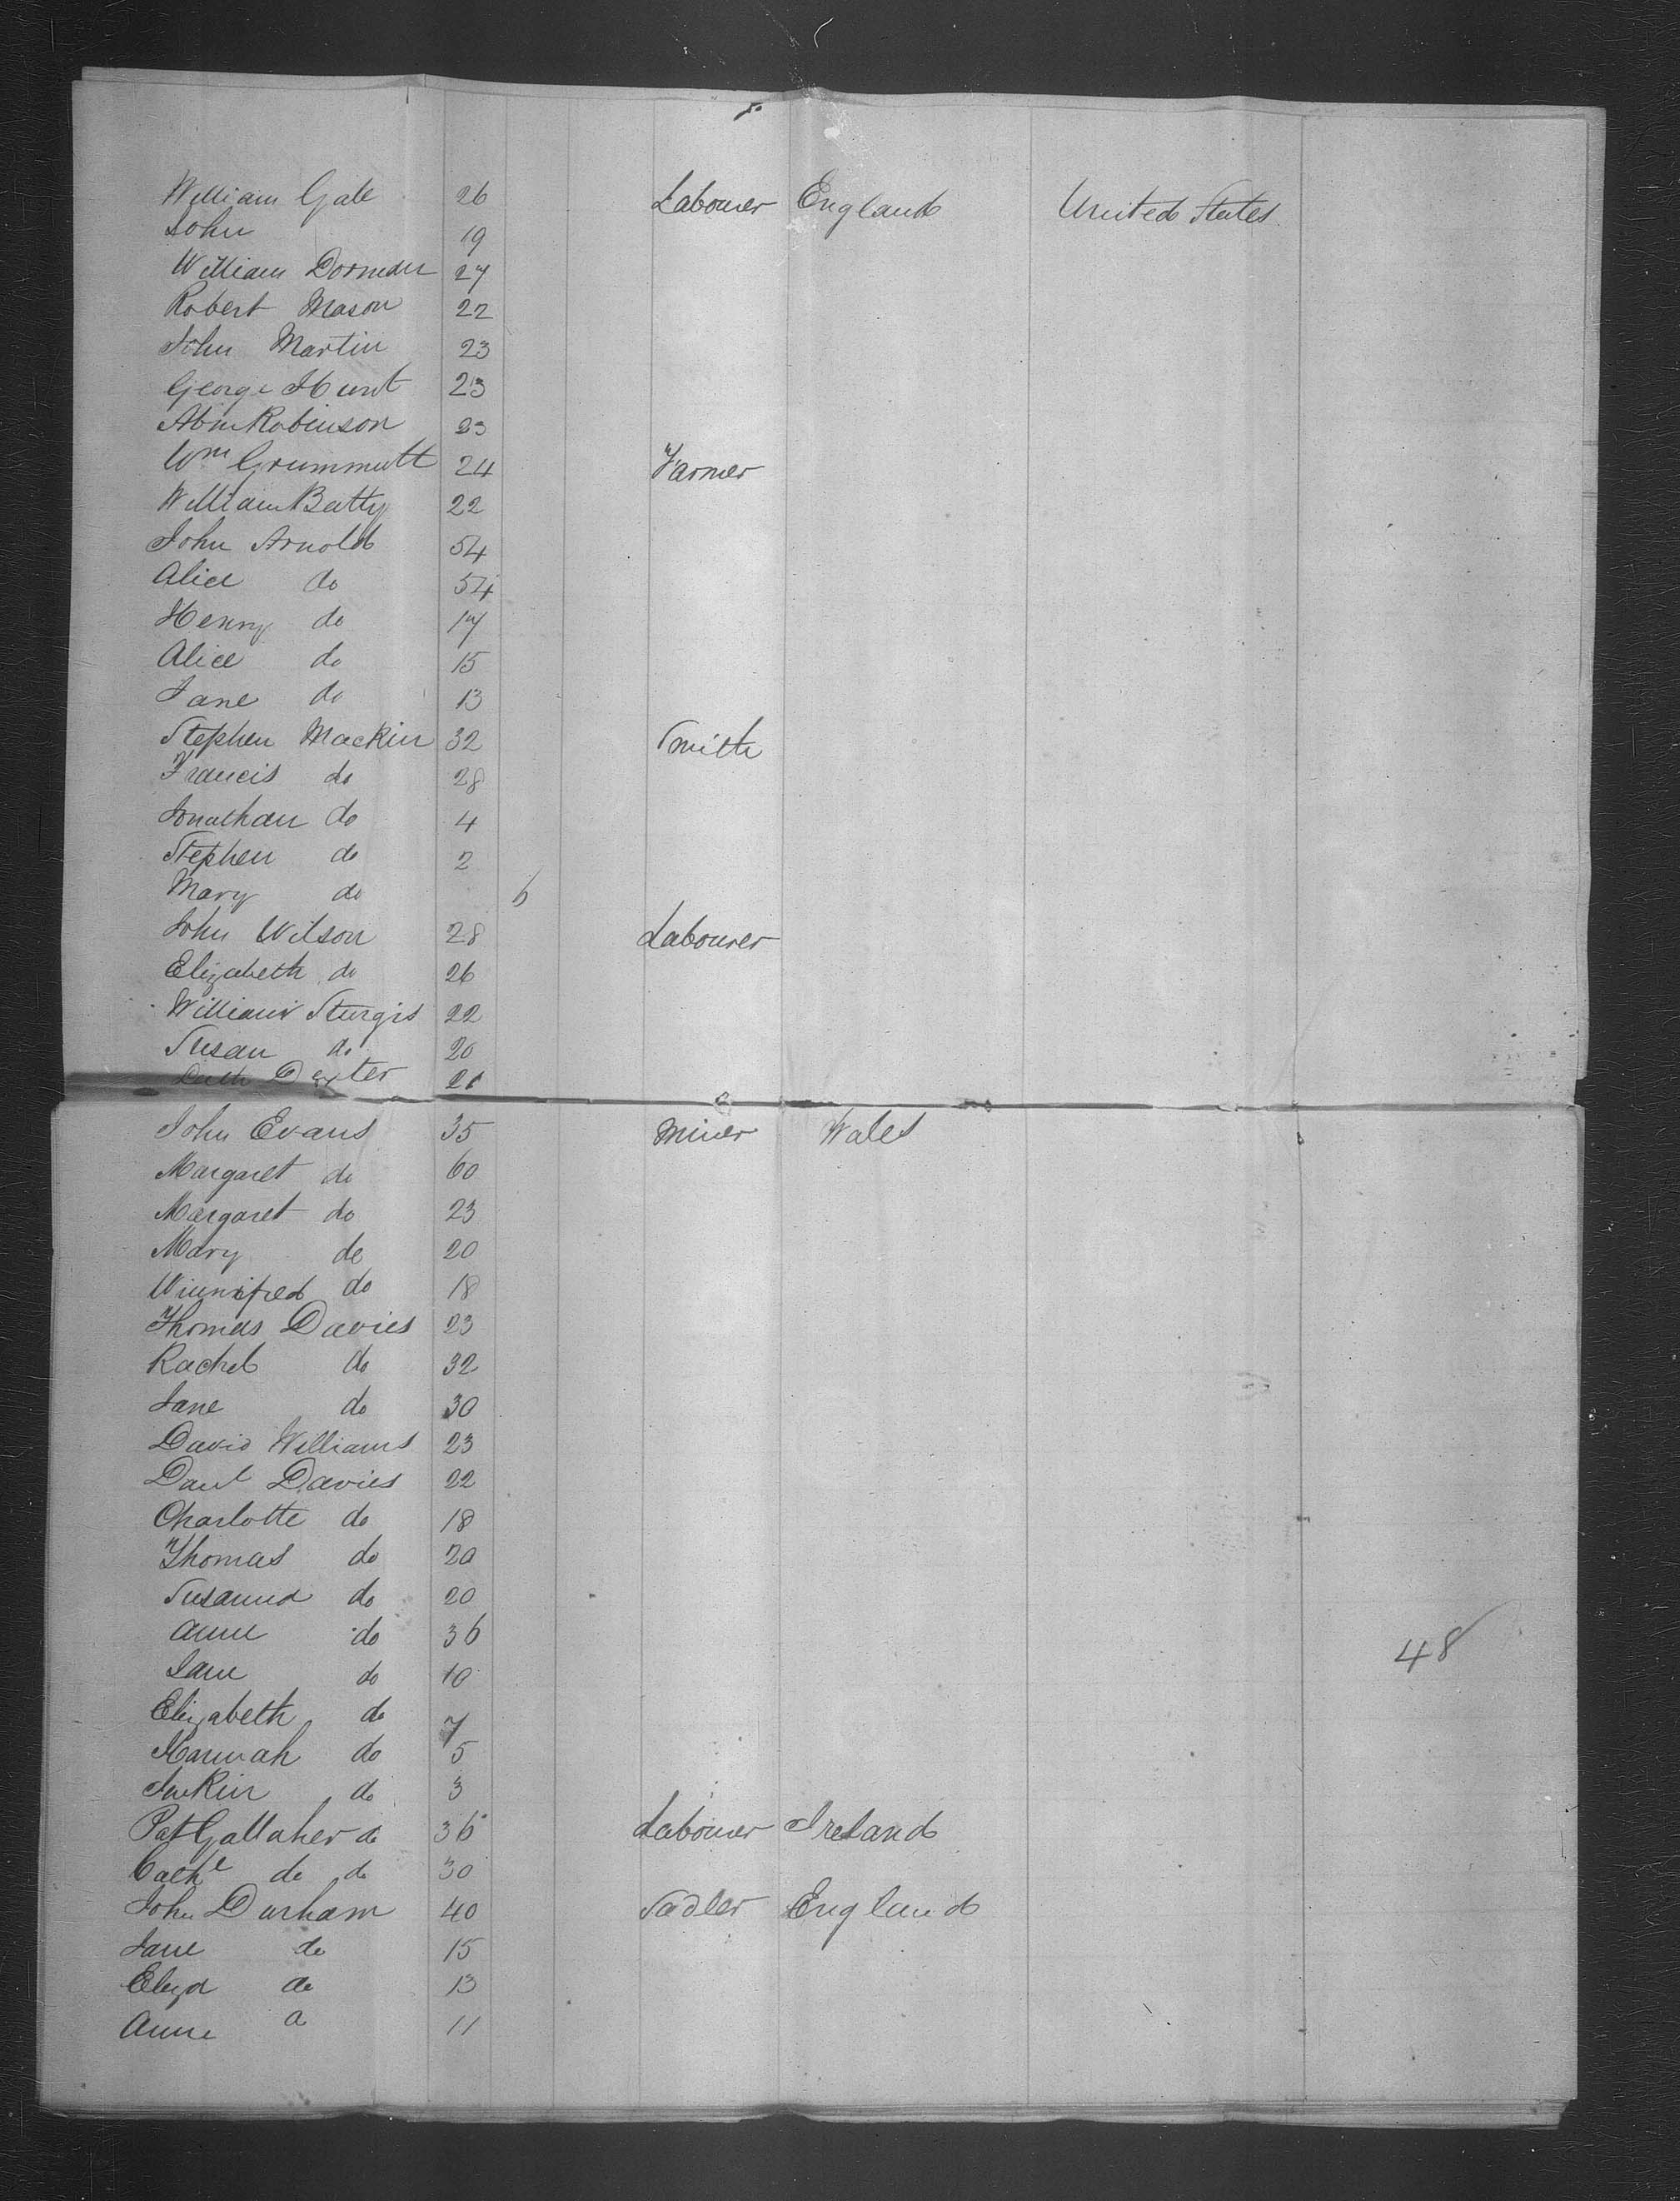 William Gale 26 Labourer England United States
John 19
William Dorman 27
Robert Mason 22
John Martin 23
George Hunt 23
Robinson 23
Wm Grummutt 24 Farmer
William Batty 22
John Arnold 54
Alice do 54
Henry do 17
Alice do 15
Jane do 13
Stephen Mackin 32 Smith
Francis do 28
Jonathan do 4
Stephen do 2
Mary do 6
John Wilson 28 Labourer
Elizabeth do 26
William Sturgis 22
Susan do 20
Dexter 21
John Evans 35 Miner Wales
Margaret do 60
Margaret do 23
Mary do 20
Winnifred do 18
Thomas Davies 23
Rachel do 32
Jane do 30
David Williams 23
Danl Davies 22
Charlotte do 18
Thomas do 20
Susanna do 20
Anne do 36
48
Jane do 10
Elizabeth do 7
Hannah do 5
Jenkin do 3
Pat Gallaher do 36 Labourer Ireland
Cathe do do 30
John Durham 40 Sadler England
Jane do 15
Eliza do 13
Anne do 11